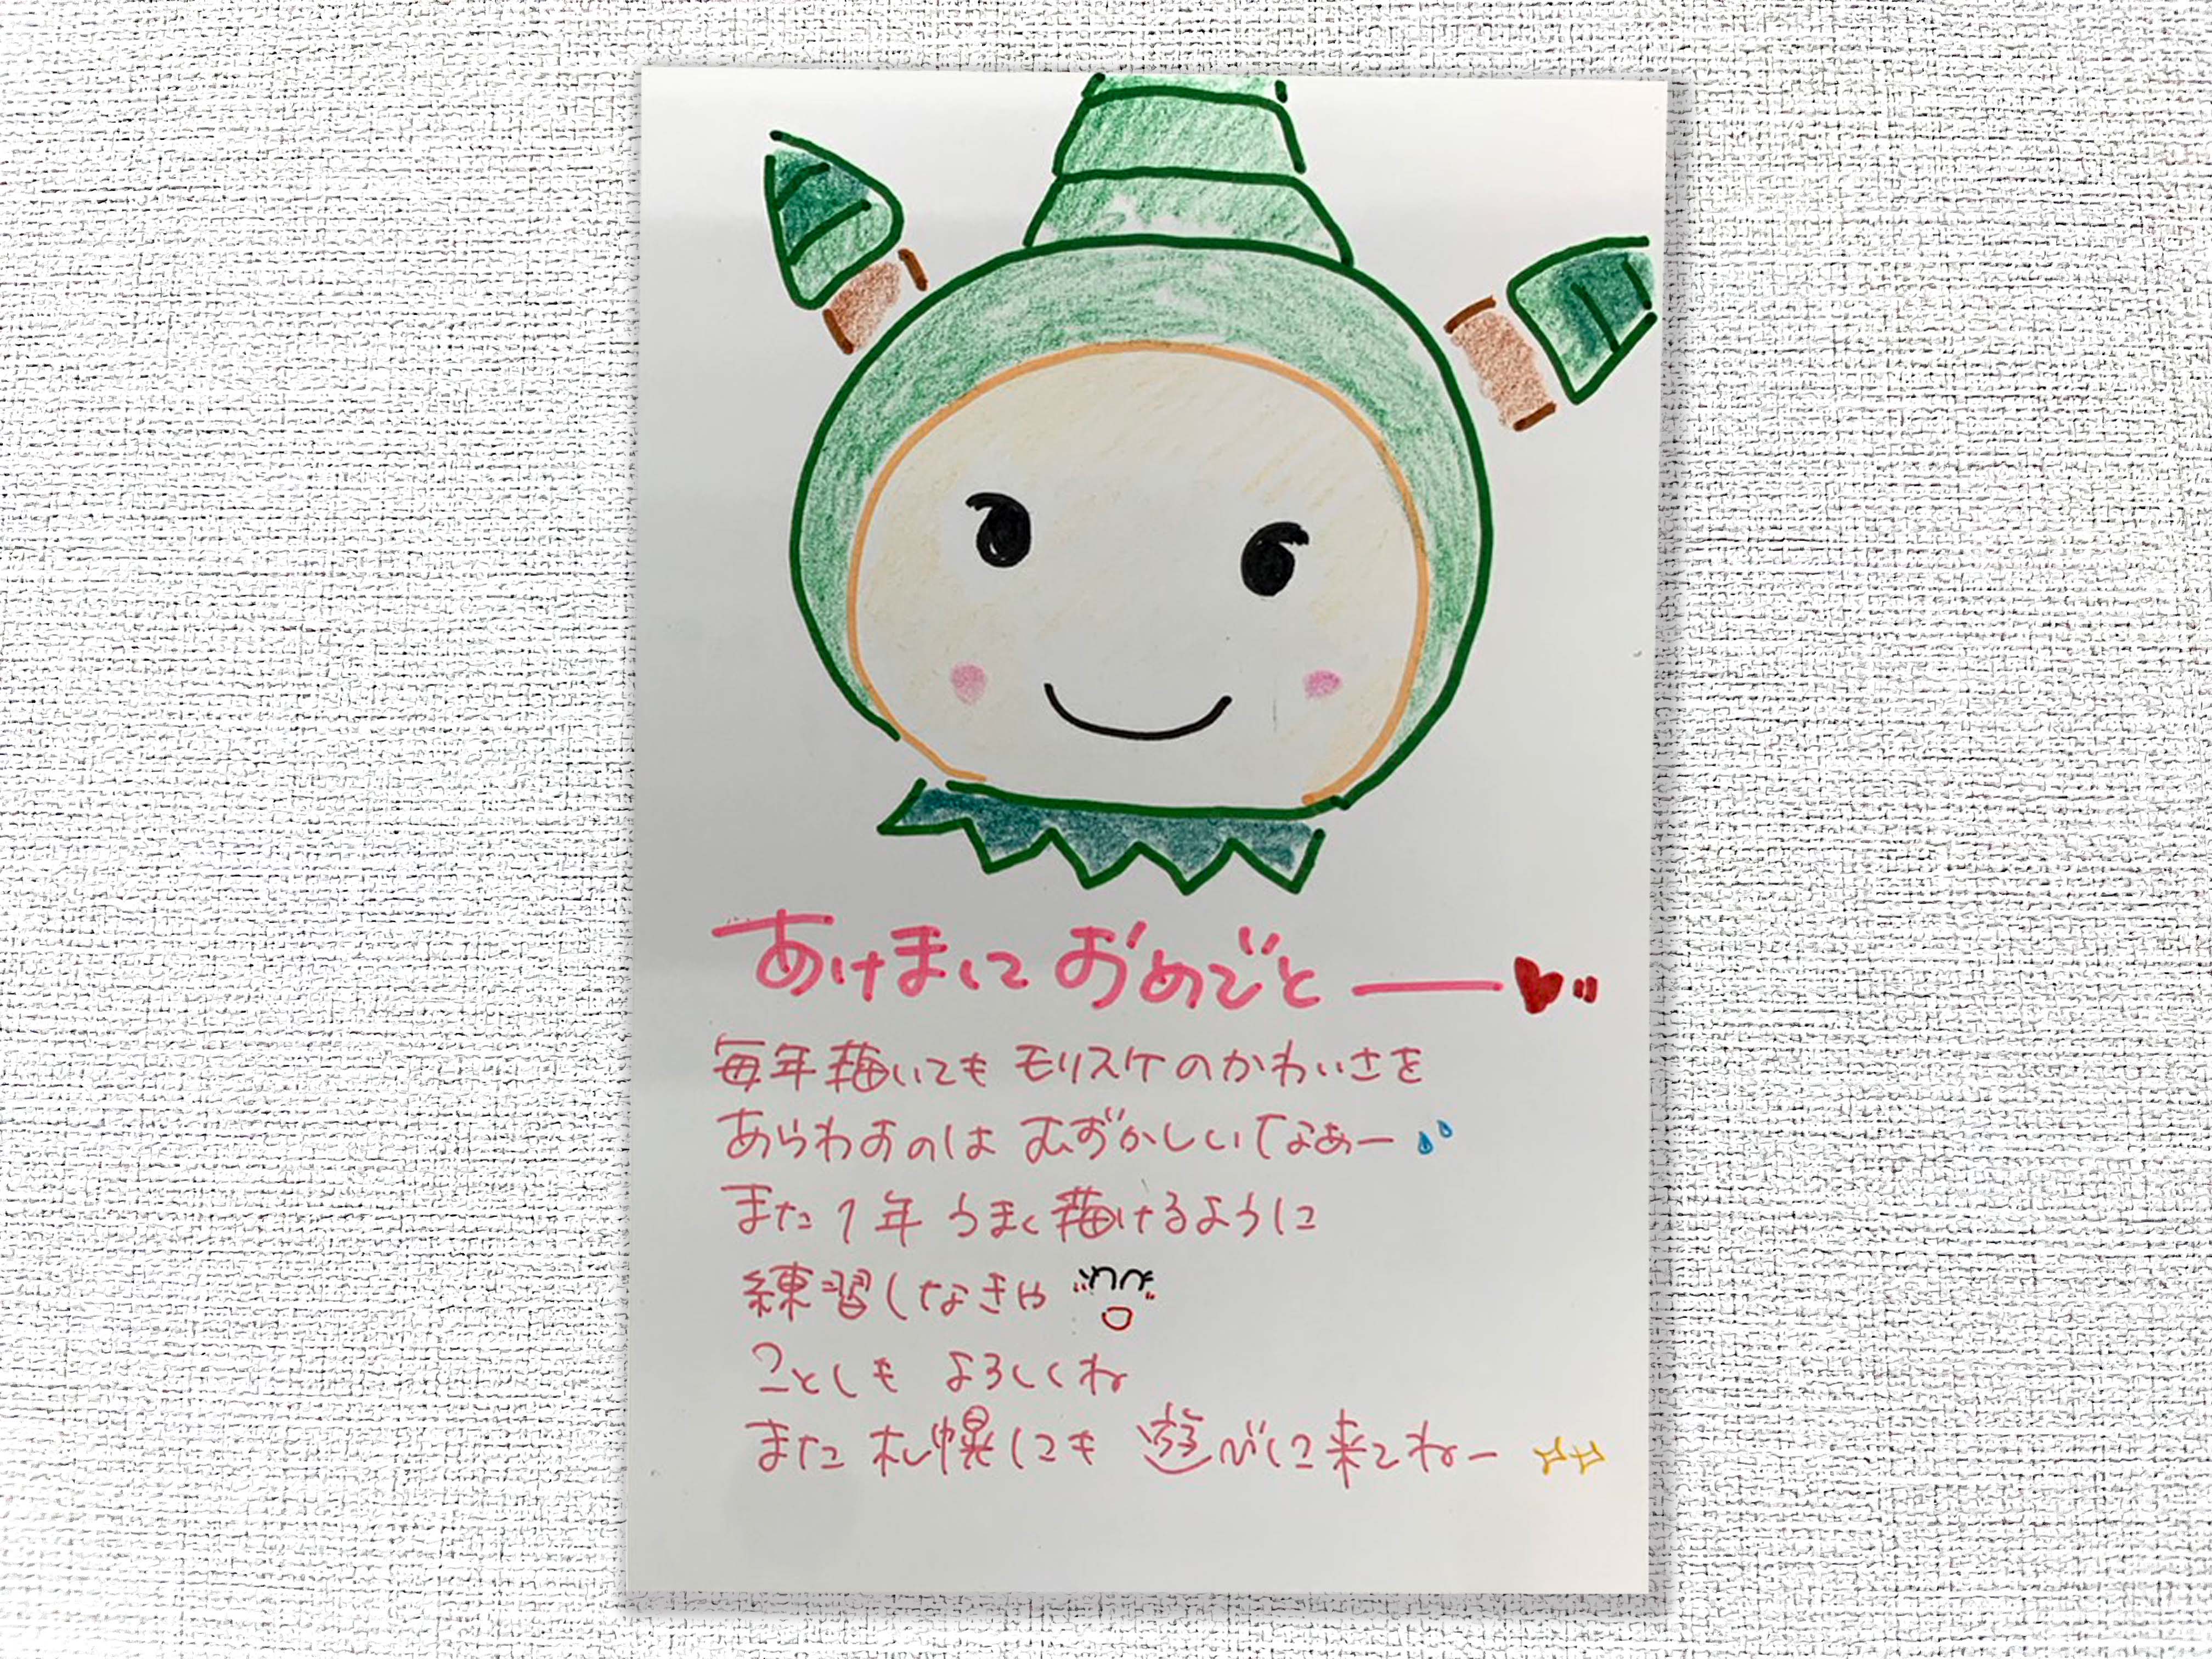 あけまして おめでとー
毎年描いても モリスケのかわいさを
あらわすのは むずかしいなあー
また1年 うまく描けるように
練習しなきゃ
ことしも よろしくね
また 札幌にも 遊びに来てねー